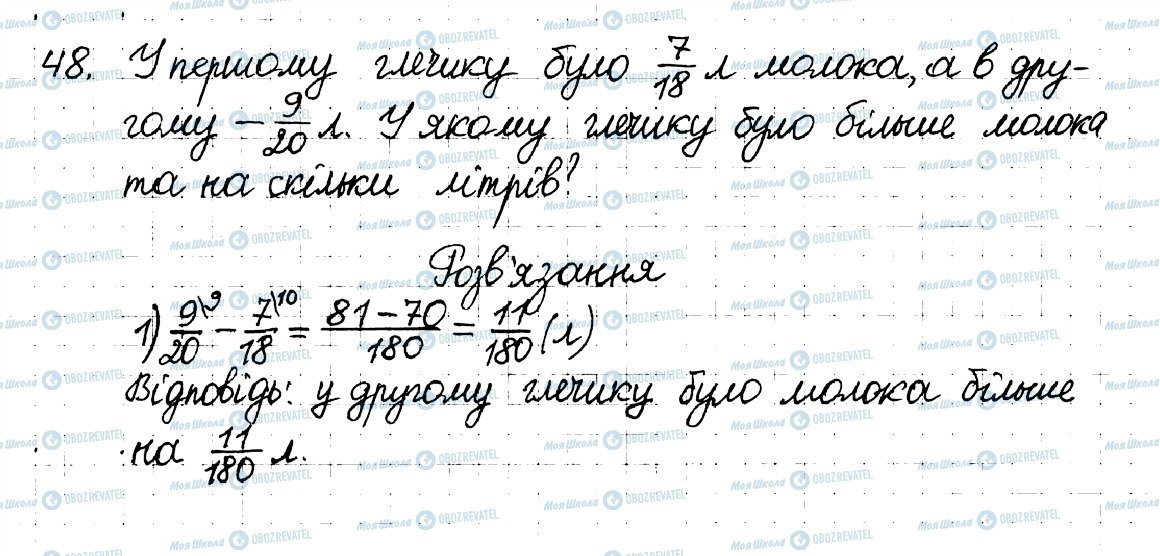 48. У першому глечику було 7/18 л молока, а в дру-
гому – 9/20 л. У якому глечику було більше молока
та на скільки літрів?
Розв'язання
1) 9\9/20 – 7\10/18 = 81–70/180 = 11/180 (л)
Відповідь: у другому глечику було молока більше
на 11/180 л.